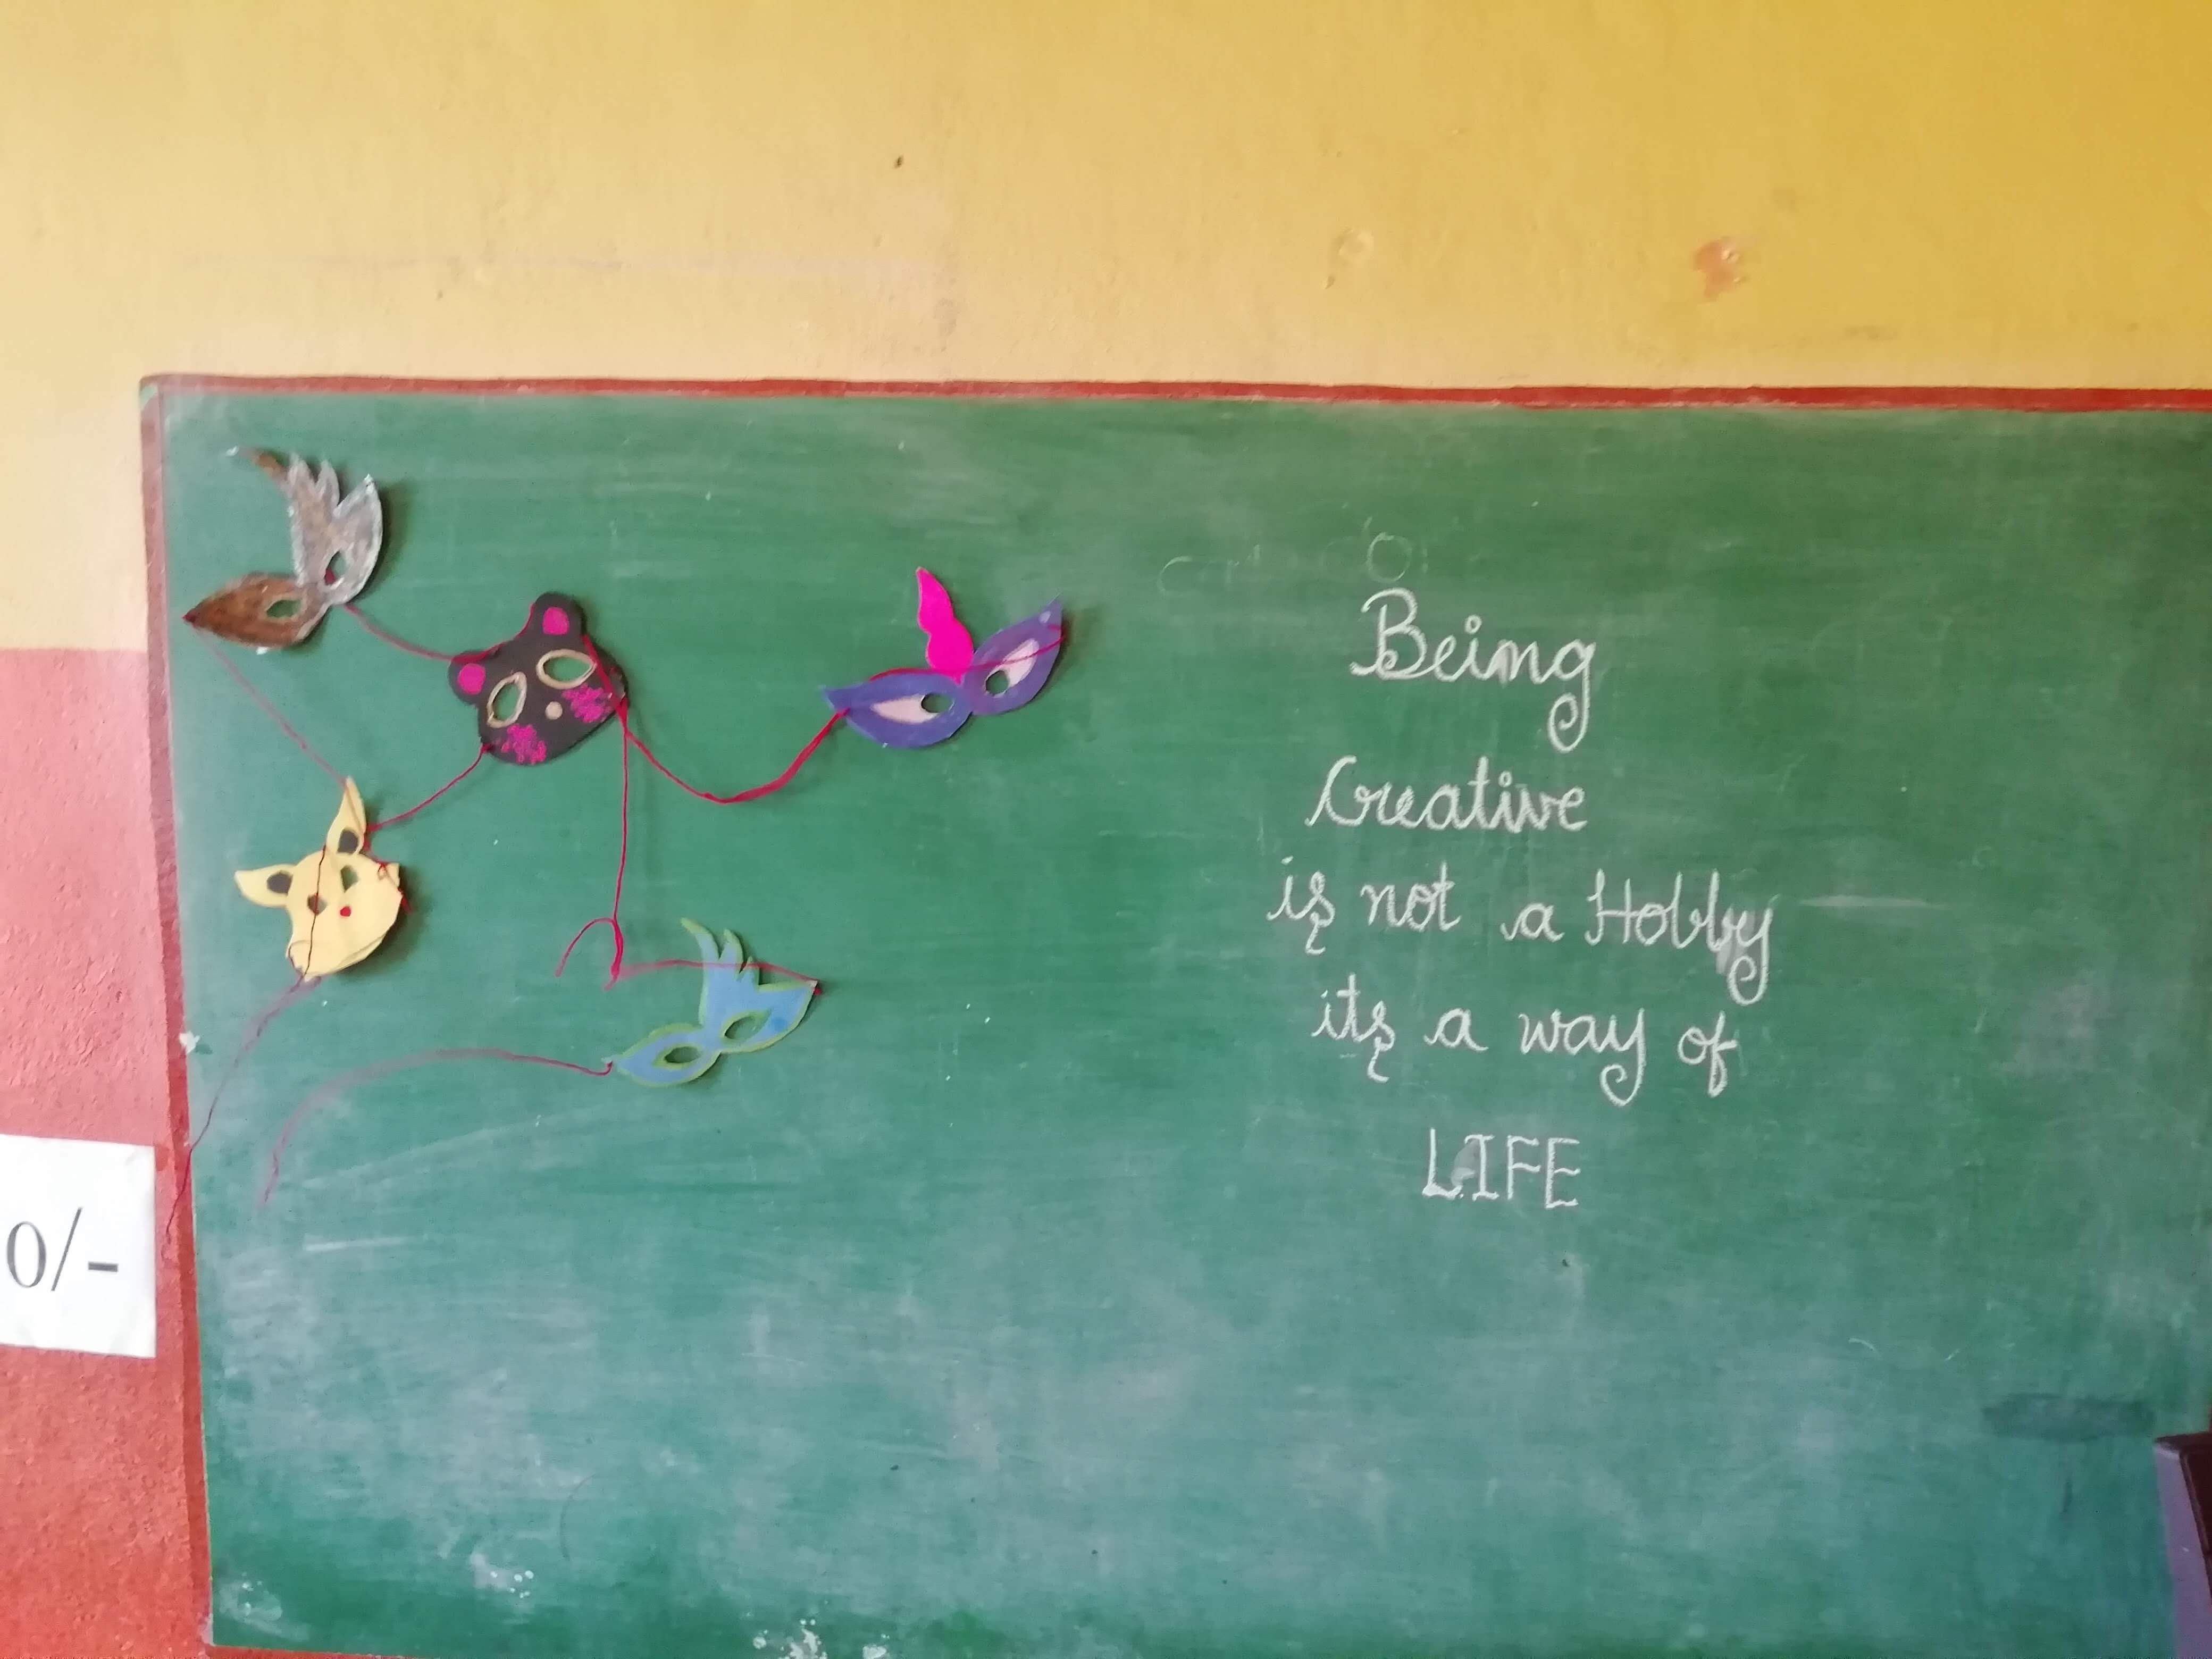 Being
Creative
is not a Hobby
its a way of
LIFE
0/-